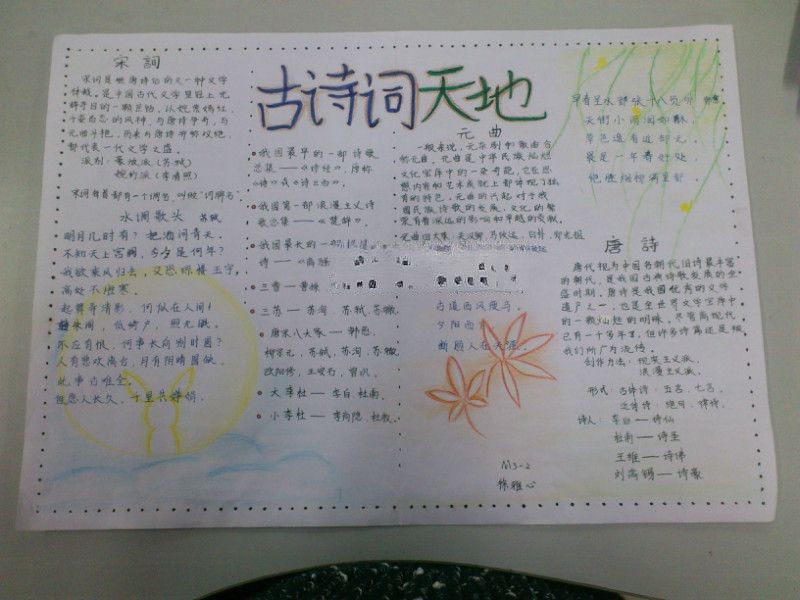 古诗词天地
宋詞
宋词是继唐诗后的又一种文学
体裁，是中国古代文学皇冠上光
与元曲斗艳，历来与唐诗并称双绝，
都代表一代文学之盛。
派别：豪放派（苏轼）
婉约派（李清照）
宋词每首都有一个调名，叫做“词牌名”
水调歌头 苏轼
明月几时有？把酒问青天。
不知天上宫阙，今夕是何年？
我欲乘风归去，又恐琼楼玉宇，
高处不胜寒。
起舞弄清影，何似在人间！
转朱阁，低绮户，照无眠。
不应有恨，何事长向别时圆？
人有悲欢离合，月有阴晴圆缺，
此事古难全。
但愿人长久，千里共婵娟。
我国最早的一部诗歌
总集——《诗经》，原称
《诗》或《诗三百》。
我国第一部浪漫主义诗
歌总集——《楚辞》。
我国最长的一部
诗——《离骚
三曹——曹操
三苏——苏洵、苏轼、苏辙。
唐宋八大家——韩愈、
柳宗元、苏轼、苏洵、苏辙、
欧阳修、王安石、曾巩。
大李杜——李白、杜甫。
小李杜——李商隐、杜牧。
元曲
一般来说，元杂剧和散曲合
称元曲，元曲是中华民族灿烂
文化宝库中的一朵奇葩，它在思
想内容和艺术成就上都体现了独
有的特色，元曲的兴起对于我
国民族诗歌的发展、文化的繁
荣有着深远的影响和卓越的贡献。
元曲四大家：关汉卿、马致远、白朴、郑光祖
古道西风瘦马。
夕阳西
断肠人在天涯
M3-2
早春呈水部张十八员外 韩愈
天街小雨润如酥，
草色遥看近却无。
最是一年春好处，
绝胜烟柳满皇都。
唐詩
唐代视为中国各朝代旧诗最丰富
的朝代，是我国古代诗歌发展的全
盛时期。唐诗是我国优秀的文学
遗产之一，也是全世界文学宝库中
的一颗灿烂的明珠。尽管离现代
已有一千多年了，但许多诗篇还是被
我们所广为流传。
创作方法：现实主义派、
浪漫主义派。
形式：古体诗：五言、七言。
近体诗：绝句、律诗。
诗人：李白——诗仙
杜甫——诗圣
王维——诗佛
刘禹锡——诗豪